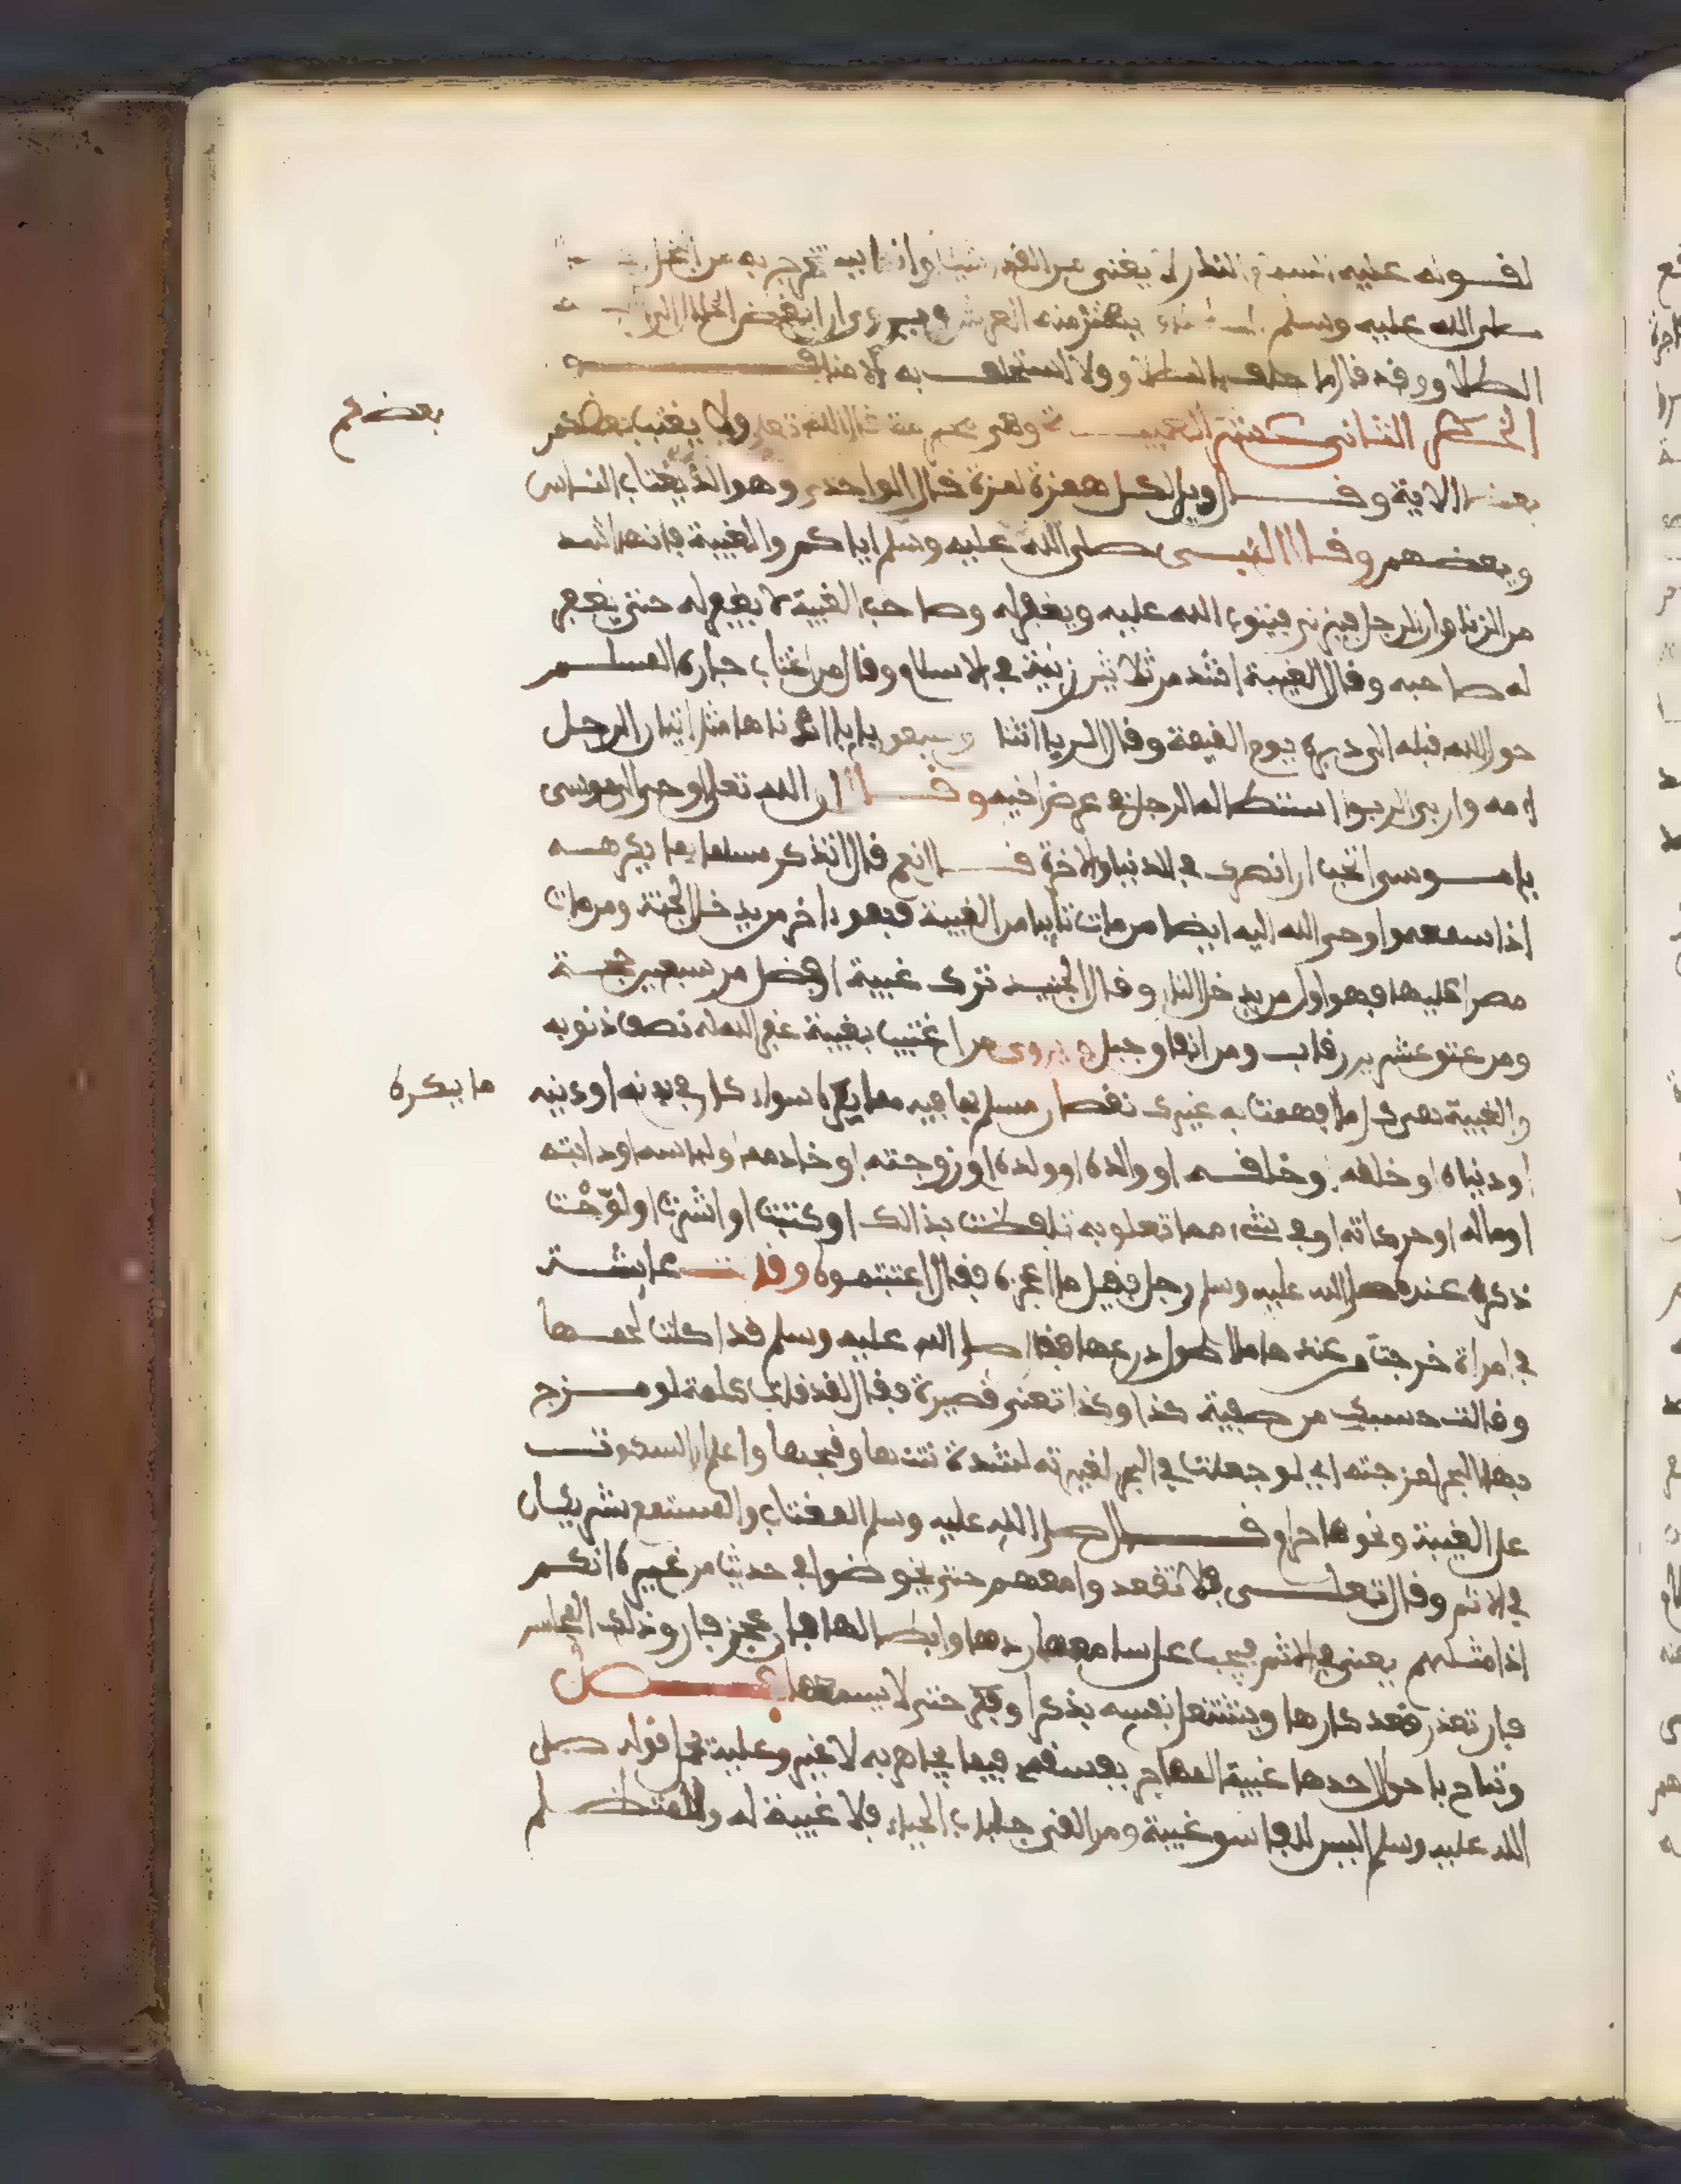 لقوله عليه السلام النذر لا يغني من القدر شيئا وانما يستخرج به من البخيل
صلى الله عليه وسلم منه العرش ويروى ان ابغض الحلال الى الله
الطلاق وقد قال ما حلف بالطلاق ولا استحلف به الا منافق
الحكم الثاني عشر الغيبة وهي محرمة قال الله تعلى ولا يغتب بعضكم
بعضكم
بعضا الاية وقال ويل لكل همزة لمزة قال الواحدي وهو الذي يغتاب الناس
وبعضهم وقال النبي صلى الله عليه وسلم اياكم والغيبة فانها اشد
من الزنا وان الرجل فيزني فيتوب الله عليه ويغفر له وصاحب الغيبة لا يغفر له حتى يغفر
له صاحبه وقال الغيبة اشد من ثلاثين زنية في الاسلام وقال من اغتاب جاره المسلم
حول الله قبله الى دبره يوم القيمة وقال الربا اثنا وسبعون بابا ادناها مثل اتيان الرجل
امه وان اربى الربوا استطالة الرجل في عرض اخيه وقال ان الله تعلى اوحى الى موسى
يا موسى اتحب ان انصرك في الدنيا والاخرة قال نعم قال لا تذكر مسلما بما يكرهه
اذا سمعه واوحى الله اليه ايضا من مات تايبا من الغيبة فهو ءاخر من يدخل الجنة ومن مات
مصرا عليها فهو اول من يدخل النار وقال الجنيد ترك غيبة افضل من سبعين حجة
ومن عتق عشرين رقاب ومن انفاق جبل ويروى من اغتيب بغيبة غفر الله له نصف ذنوبه
والغيبة ذكرك ما افهمت به غيرك نقصان مسلم بما فيه مما يكره سواء كان في بدنه او دينه
ما يكره
او دنياه او خلقه وخلقه او والده او ولده او زوجته او خادمه او لباسه او دابته
او ماله او حركاته او في شيء مما تعلق به تلفظت بذالك او كتبت او اشرت او لوّحْت
ذكر عنده صلى الله عليه وسلم رجل فقيل ما اعجزه فقال اغتبتموه وقالت عايشة
في امراة خرجت من عندها ما اطول درعها فقال صلى الله عليه وسلم قد اكلت لحمها
وقالت حسبك من صفية كذا وكذا تعني قصيرة فقال لقد قلت كلمة لو مزج
بها البحر لمزجته اي لو جعلت في البحر لغيرته لشدة نتنها وقبحها واعلم ان السكوت
على الغيبة ونحوها حرام قال صلى الله عليه وسلم المغتاب والمستمع شريكان
في الاثم وقال تعلى فلا تقعدوا معهم حتى يخوضوا في حديث غيره انكم
اذا مثلهم يعني في الاثم فيجب على سامعها ردها وابطالها فان عجز فارق ذلك المجلس
فان تعذر قعد كارها ويشتغل نفسه بذكر او فكر حتى لا يسمعها فصل
وتباح باحوال احدها غيبة المجاهر بفسقه فيما يجاهر به لا غير وعليه يحمل قوله صلى
الله عليه وسلم ليس للفاسق غيبة ومن القى جلباب الحياء فلا غيبة له والمتظلم